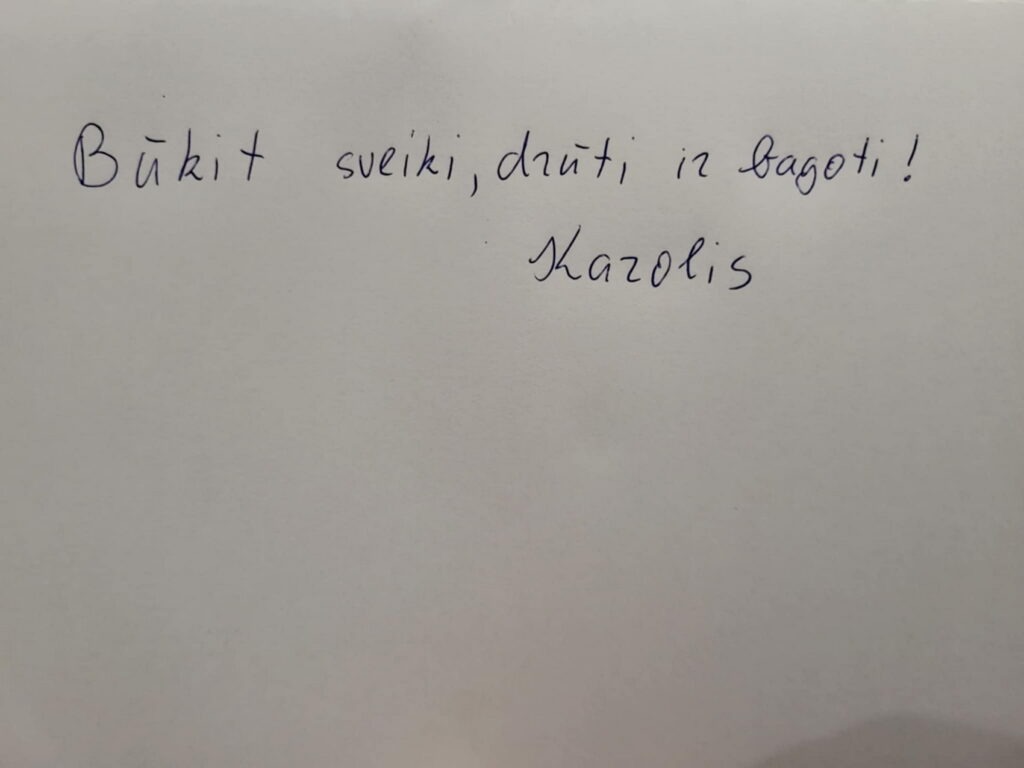 Būkit sveiki, drūti ir bagoti!
Karolis